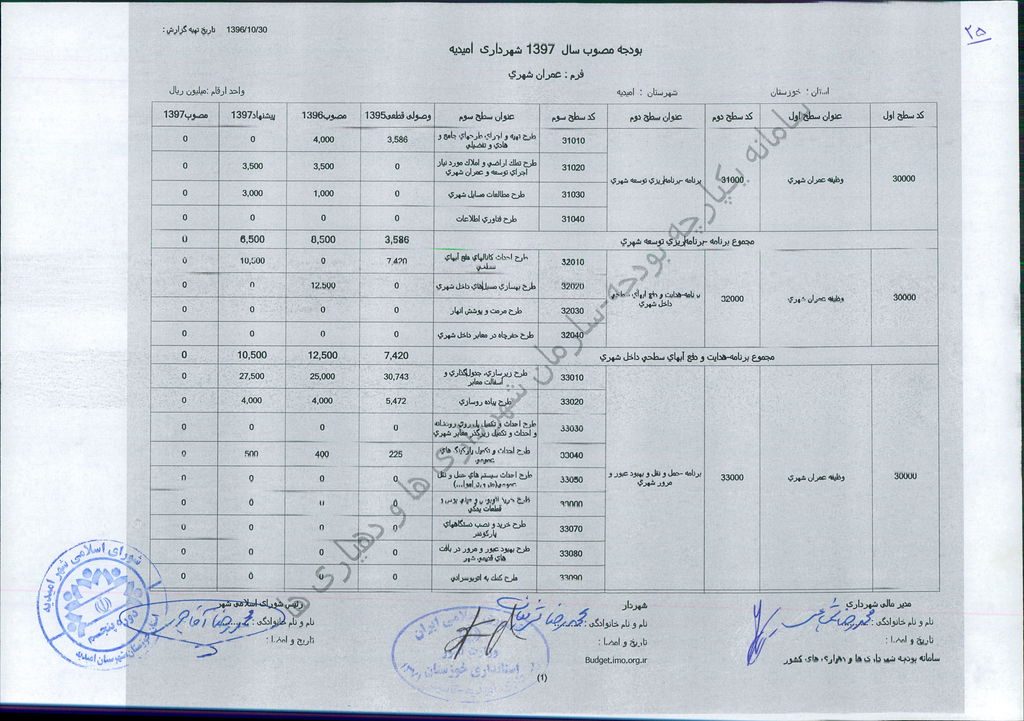 ۲۵
تاریخ تهیه گزارش : 1396/10/30
بودجه مصوب سال 1397 شهرداری امیدیه
فرم : عمران شهري
استان : خوزستان شهرستان : امیدیه واحد ارقام :میلیون ریال
کد سطح اول عنوان سطح اول کد سطح دوم عنوان سطح دوم کد سطح سوم عنوان سطح سوم وصولی قطعی1395 مصوب1396 پیشنهاد1397 مصوب1397
30000 وظیفه عمران شهري 31000 برنامه -برنامه‌ریزي توسعه شهري
31010 طرح تهیه و اجراي طرحهاي جامع و هادي و تفصیلي 3,586 4,000 0 0
31020 طرح تملك اراضي و املاك مورد نیاز اجراي توسعه و عمران شهري 0 3,500 3,500 0
31030 طرح مطالعات مسایل شهري 0 1,000 3,000 0
31040 طرح فناوري اطلاعات 0 0 0 0
مجموع برنامه -برنامه‌ریزي توسعه شهري 3,586 8,500 6,500 0
30000 وظیفه عمران شهري 32000 برنامه-هدایت و دفع آبهاي سطحي داخل شهري
32010 طرح احداث کانالهاي دفع آبهاي سطحي 7,420 0 10,500 0
32020 طرح بهسازي مسیل‌هاي داخل شهري 0 12,500 0 0
32030 طرح مرمت و پوشش انهار 0 0 0 0
32040 طرح حفرچاه در معابر داخل شهري 0 0 0 0
مجموع برنامه-هدایت و دفع آبهاي سطحي داخل شهري 7,420 12,500 10,500 0
30000 وظیفه عمران شهري 33000 برنامه -حمل و نقل و بهبود عبور و مرور شهري
33010 طرح زیرسازي، جدول‌گذاري و آسفالت معابر 30,743 25,000 27,500 0
33020 طرح پیاده روسازي 5,472 4,000 4,000 0
33030 طرح احداث و تکمیل پل روي رودخانه و احداث و تکمیل زیرگذر معابر شهري 0 0 0 0
33040 طرح احداث و تکمیل پارکینگ هاي عمومي 225 400 500 0
33050 طرح احداث سیستم هاي حمل و نقل عمومي 0 0 0 0
33060 طرح خرید اتوبوس و میني بوس و قطعات یدکي 0 0 0 0
33070 طرح خرید و نصب دستگاههاي پارکومتر 0 0 0 0
33080 طرح بهبود عبور و مرور در بافت هاي قدیمي شهر 0 0 0 0
33090 طرح کمك به اتوبوسراني 0 0 0 0
سامانه یکپارچه بودجه-سازمان شهرداری ها و دهیاری ها
مدیر مالی شهرداری شهردار رئیس شورای اسلامی شهر
نام و نام خانوادگی : نام و نام خانوادگی : محمدرضا نام و نام خانوادگی : محمدرضا
تاریخ و امضا : تاریخ و امضا : تاریخ و امضا :
سامانه بودجه شهرداری ها و دهیاری های کشور Budget.imo.org.ir
(1)
شورای اسلامی شهر امیدیه
دوره پنجم
استانداری خوزستان